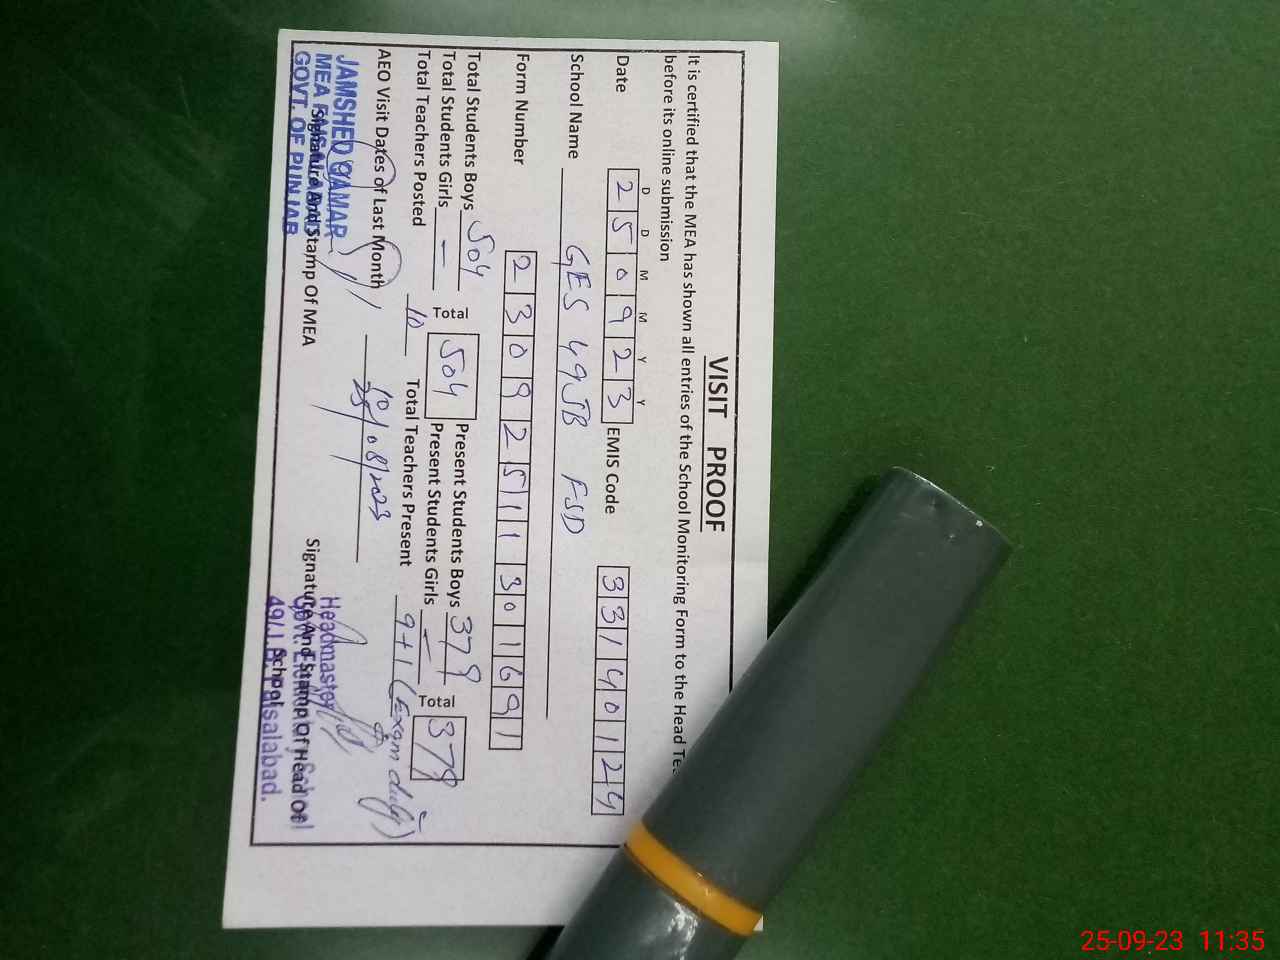 VISIT PROOF
It is certified that the MEA has shown all entries of the School Monitoring Form to the Head Te
before its online submission
D D M M Y Y
Date 2 5 0 9 2 3 EMIS Code 3 3 1 4 0 1 2 4
School Name GES 49 JB FSD
Form Number 2 3 0 9 2 5 1 1 3 0 1 6 9 1
Total Students Boys 504 Total 504 Present Students Boys 379 Total 379
Total Students Girls — Present Students Girls —
Total Teachers Posted 10 Total Teachers Present 9+1 (Exam duty)
AEO Visit Dates of Last Month 10/08/2023
JAMSHED QAMAR
MEA
GOVT. OF PUNJAB
Signature And Stamp Of MEA
Headmaster
Signature And Stamp Of Head Of
School
Faisalabad.
25-09-23 11:35